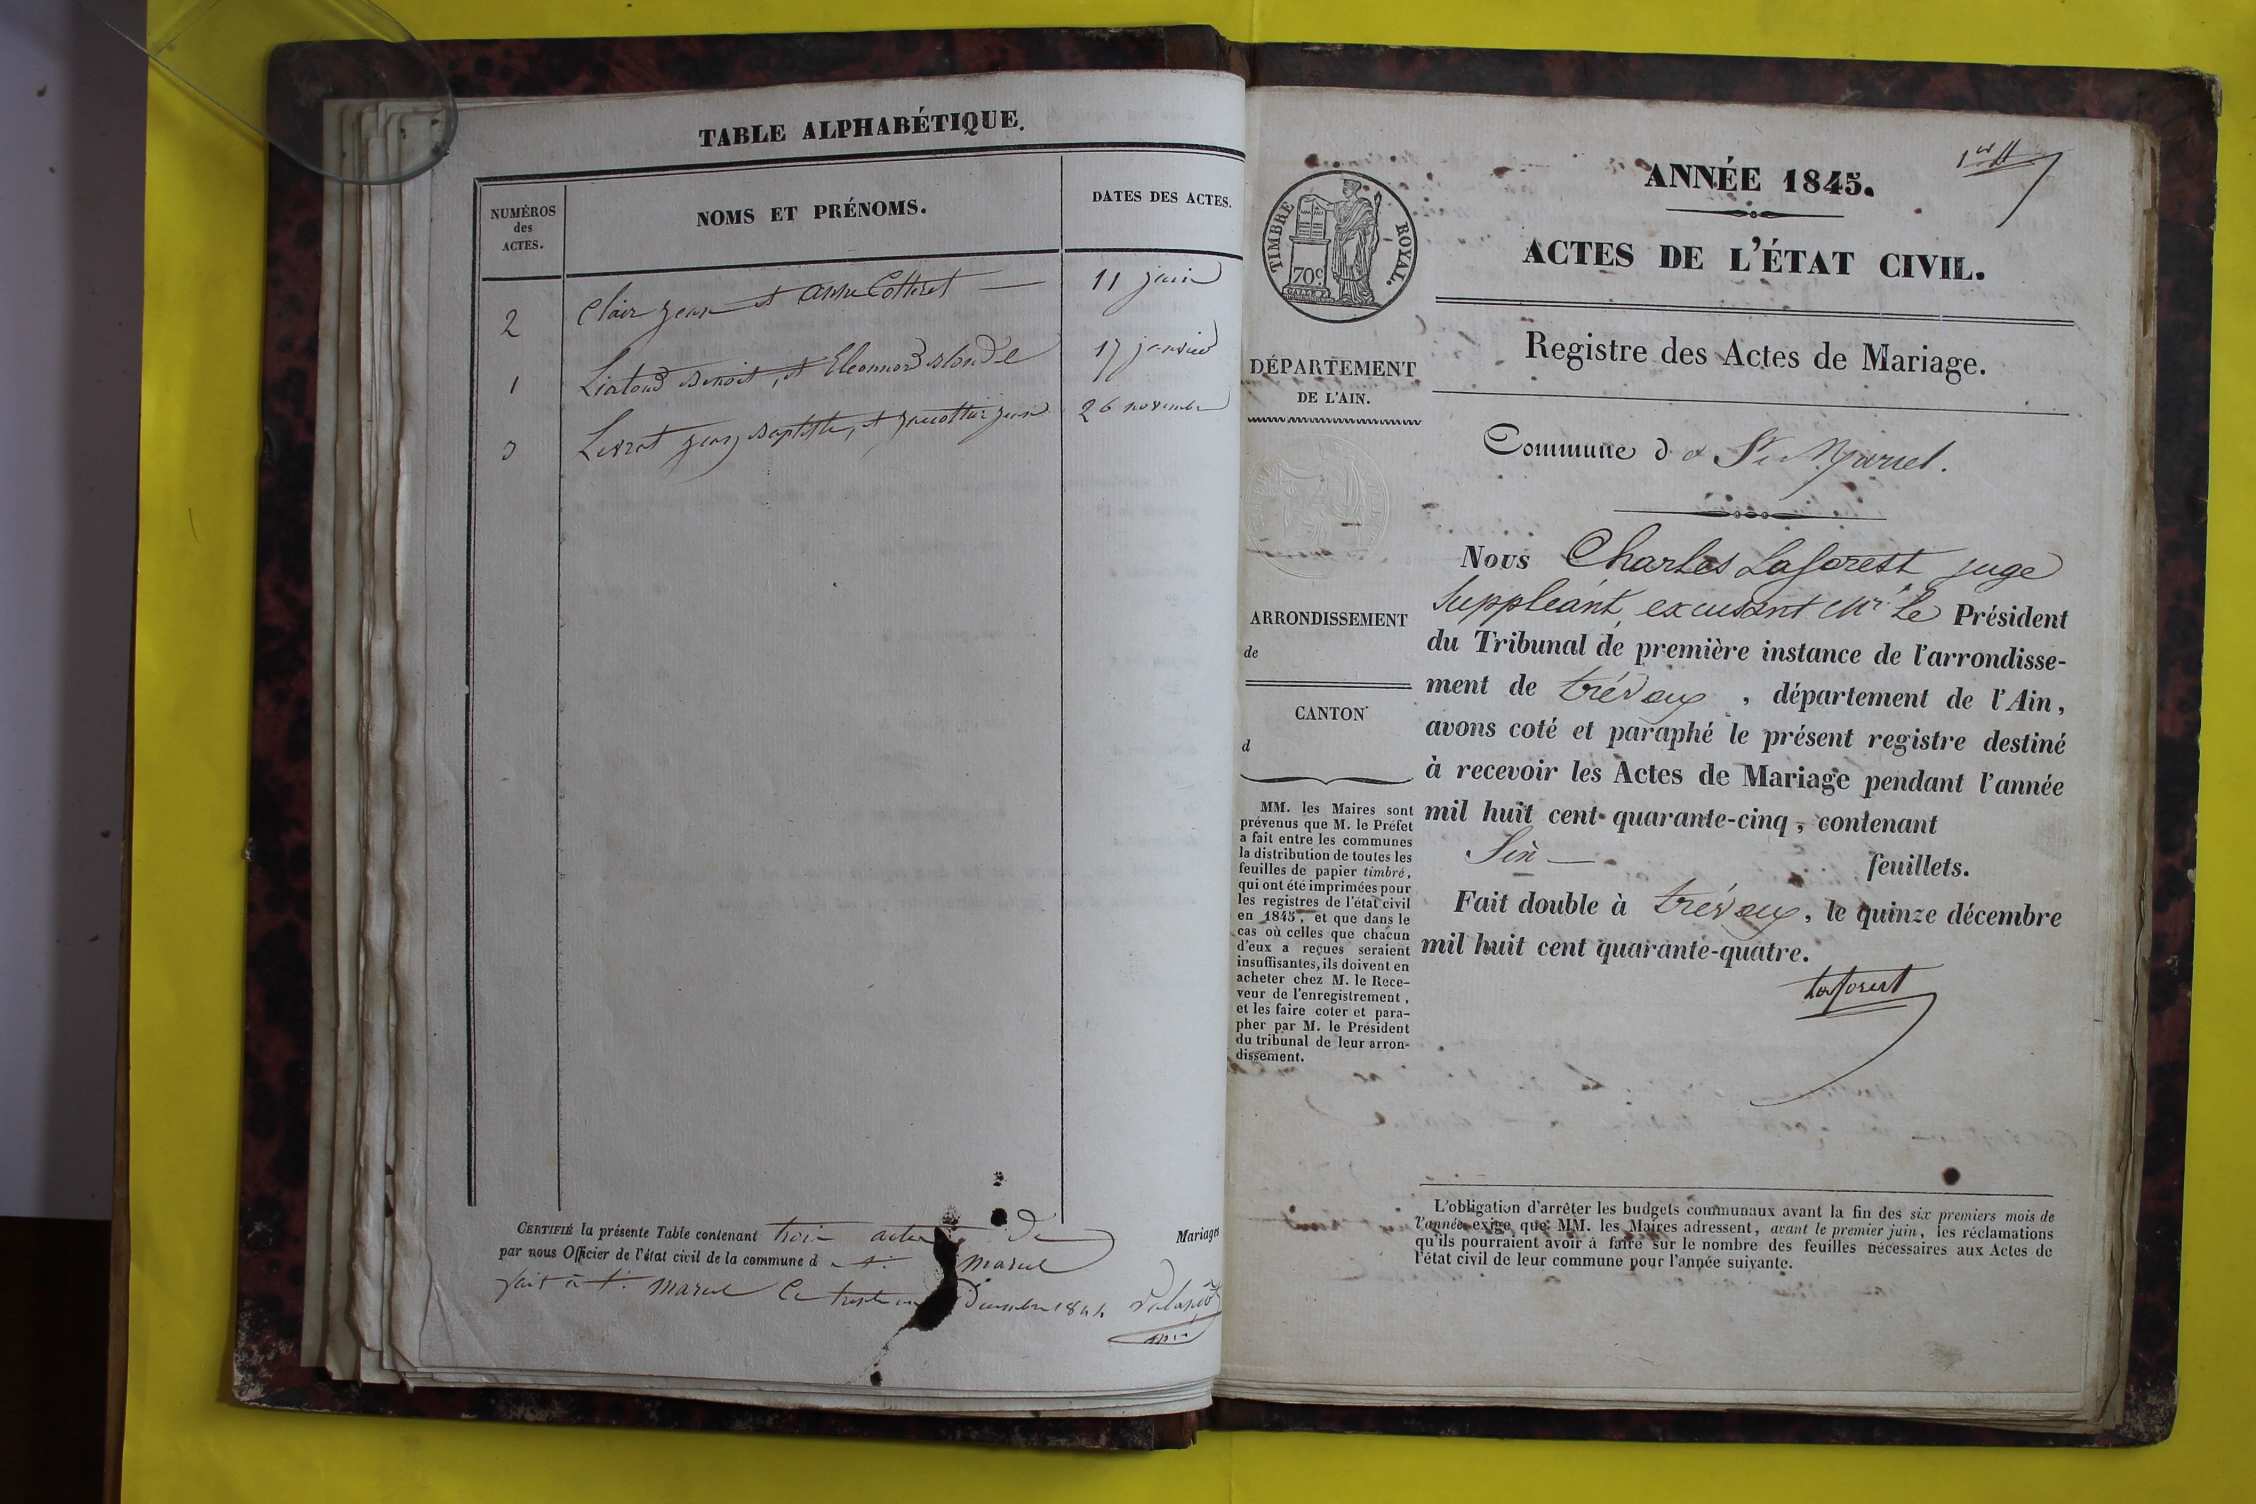 TABLE ALPHABÉTIQUE.
NUMÉROS
des
ACTES.
NOMS ET PRÉNOMS.
DATES DES ACTES.
2 Clair Jean et Anne Cotteret — 11 juin
1 Benoit, et Eleonnord Blondel 17 janvier
3 Livrat Jean Baptiste, et 26 novembre
CERTIFIÉ la présente Table contenant trois actes de Mariages
par nous Officier de l'état civil de la commune d e St. Marcel
fait à St. Marcel le trente un Décembre 1844
1er ff
ANNÉE 1845.
ACTES DE L'ÉTAT CIVIL.
Registre des Actes de Mariage.
TIMBRE ROYAL.
70c.
DÉPARTEMENT
DE L'AIN.
ARRONDISSEMENT
de
CANTON
d
MM. les Maires sont
prévenus que M. le Préfet
a fait entre les communes
la distribution de toutes les
feuilles de papier timbré,
qui ont été imprimées pour
les registres de l'état civil
en 1845, et que dans le
cas où celles que chacun
d'eux a reçues seraient
insuffisantes, ils doivent en
acheter chez M. le Rece-
veur de l'enregistrement,
et les faire coter et para-
pher par M. le Président
du tribunal de leur arron-
dissement.
Commune d e St. Marcel.
Nous Charles Laforest juge
Suppléant, excusant Mr. le Président
du Tribunal de première instance de l'arrondisse-
ment de trévoux, département de l'Ain,
avons coté et paraphé le présent registre destiné
à recevoir les Actes de Mariage pendant l'année
mil huit cent quarante-cinq, contenant
Six — feuillets.
Fait double à trévoux, le quinze décembre
mil huit cent quarante-quatre.
Laforest
L'obligation d'arrêter les budgets communaux avant la fin des six premiers mois de
l'année exige que MM. les Maires adressent, avant le premier juin, les réclamations
qu'ils pourraient avoir à faire sur le nombre des feuilles nécessaires aux Actes de
l'état civil de leur commune pour l'année suivante.